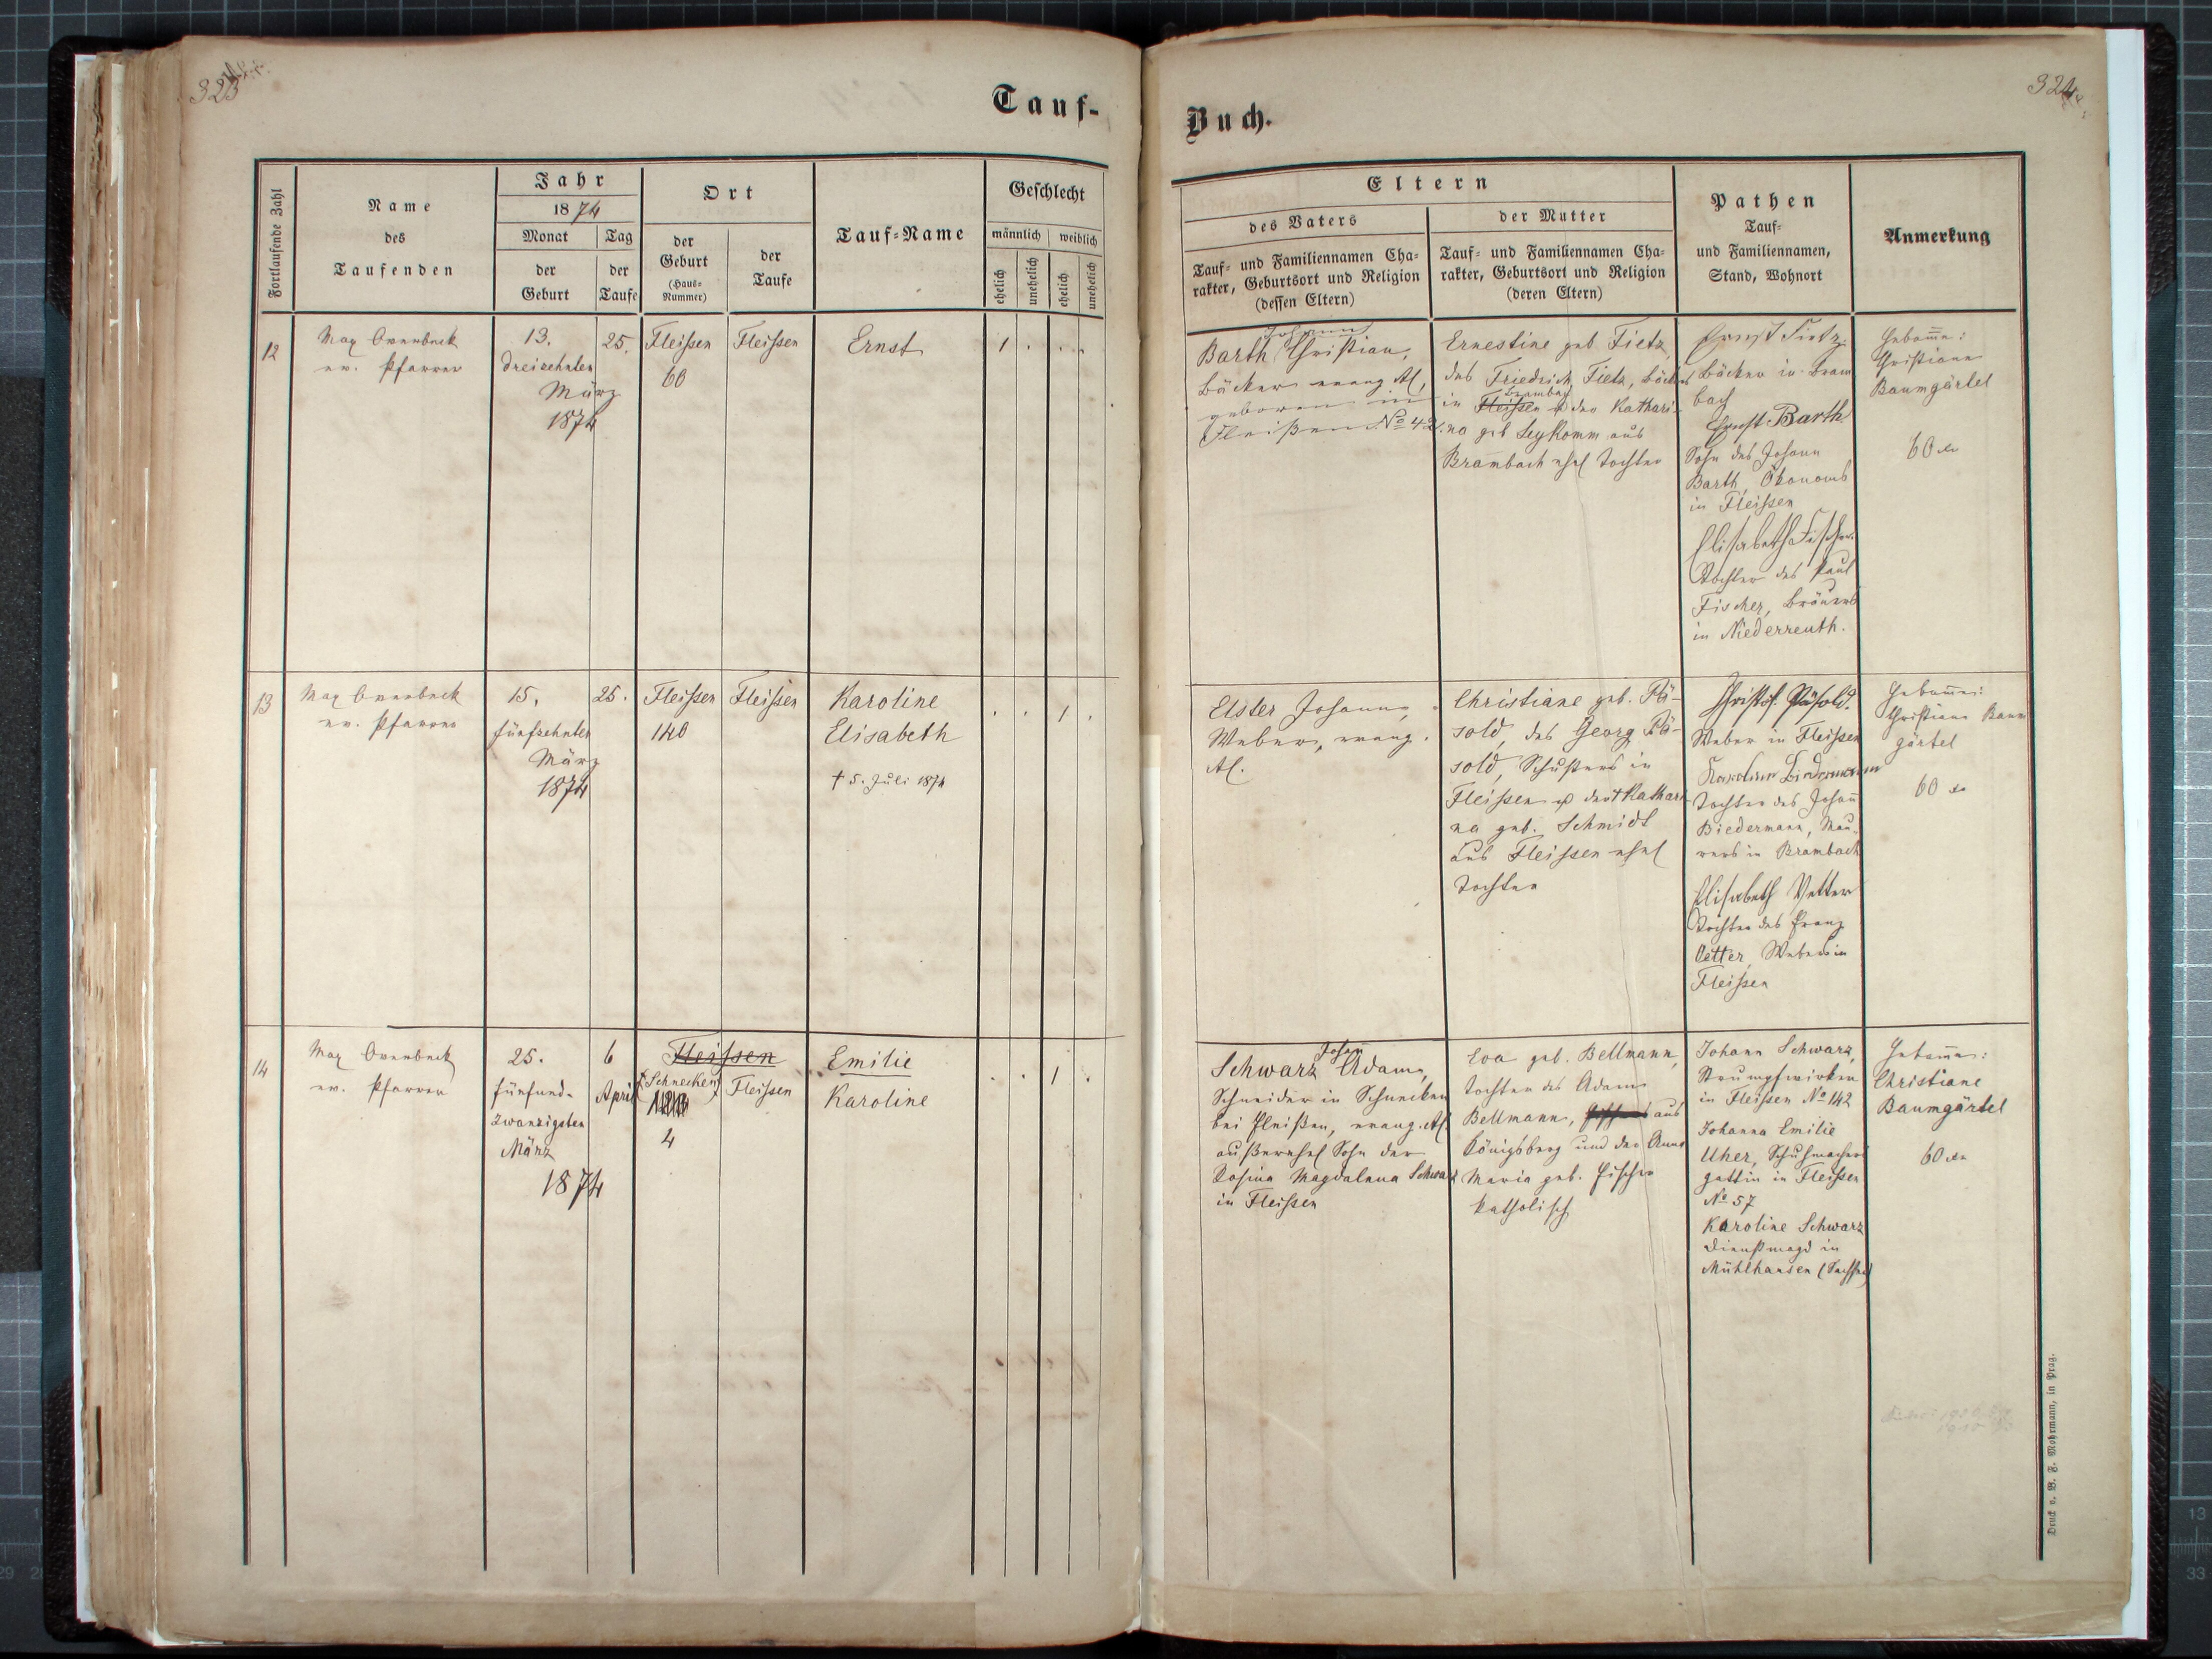 323
324
Tauf-
Buch.
Fortlaufende Zahl
Name
des
Taufenden
Jahr
1874
Monat
der
Geburt
Tag
der
Taufe
Ort
der
Geburt
(Haus-
Nummer)
der
Taufe
Tauf-Name
Geschlecht
männlich
weiblich
ehelich
unehelich
ehelich
unehelich
Eltern
des Vaters
Tauf- und Familiennamen Cha-
rakter, Geburtsort und Religion
(dessen Eltern)
der Mutter
Tauf- und Familiennamen Cha-
rakter, Geburtsort und Religion
(deren Eltern)
Pathen
Tauf-
und Familiennamen,
Stand, Wohnort
Anmerkung
12
Max Overbeck
ev. Pfarrer
13.
dreizehnten
März
1874
25.
Fleißen
60
Fleißen
Ernst
1 . . .
Johann
Barth Christian,
Bäcker evang. AC,
geboren in
Fleißen No 42.
Ernestine geb. Tietz,
des Friedrich Tietz, Bäckers
Brambach
in Fleißen & der Kathari-
na geb. Leykomm aus
Brambach ehel Tochter
Ernst Tietz.
Bäcker in Bram
bach
Ernst Barth.
Sohn des Johann
Barth, Ökonoms
in Fleissen
Elisabeth Fischer.
Tochter des Paul
Fischer, Bräuers
in Niederreuth.
Hebamme:
Christiane
Baumgärtel
60 xr
13
Max Overbeck
ev. Pfarrer
15.
fünfzehnten
März
1874
25.
Fleißen
140
Fleißen
Karoline
Elisabeth
† 5. Juli 1874
. . 1 .
Elster Johann,
Weber, evang.
AC.
Christiane geb. Pä-
sold, des Georg Pä-
sold, Schusters in
Fleißen & der † Kathari-
na geb. Schmidt
aus Fleissen ehel
Tochter
Christof. Päsold.
Weber in Fleißen
Karoline Biedermann
Tochter des Johann
Biedermann, Mau-
rers in Brambach
Elisabeth Vetter
Tochter des Franz
Vetter, Webers in
Fleißen
Hebamme:
Christiane Baum
gärtel
60 xr
14
Max Overbeck
ev. Pfarrer
25.
fünfund-
zwanzigsten
März
1874
6
April
Fleißen
(Schnecken)
4
Fleissen
Emilie
Karoline
. . 1 .
Johann
Schwarz Adam,
Schneider in Schnecken
bei Fleißen, evang. AC.
außerehel Sohn der
Rosina Magdalena Schwarz
in Fleissen
Eva geb. Bellmann,
Tochter des Adam
Bellmann, aus
Königsberg und der Anna
Maria geb. Fischer
katholisch
Johann Schwarz,
Strumpfwirker
in Fleissen No 142
Johanna Emilie
Uher, Schuhmachers
gattin in Fleissen
No 57
Karoline Schwarz
Dienstmagd in
Mühlhausen (Sachsen)
Hebamme:
Christiane
Baumgärtel
60 xr
Druck v. W. F. Mohrmann, in Prag.